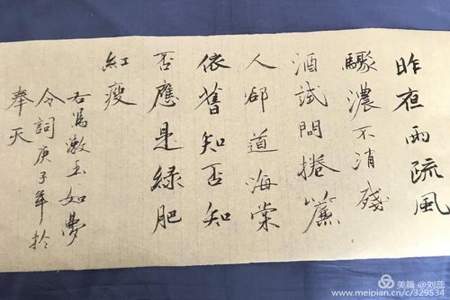 昨夜雨疏風
驟濃不消殘
酒試問捲簾
人郤道海棠
依舊知否知
否應是綠肥
紅瘦
右為漱玉如夢
令詞庚子年於
奉天
美篇 @刘蕊
www.meipian.cn/c/329534